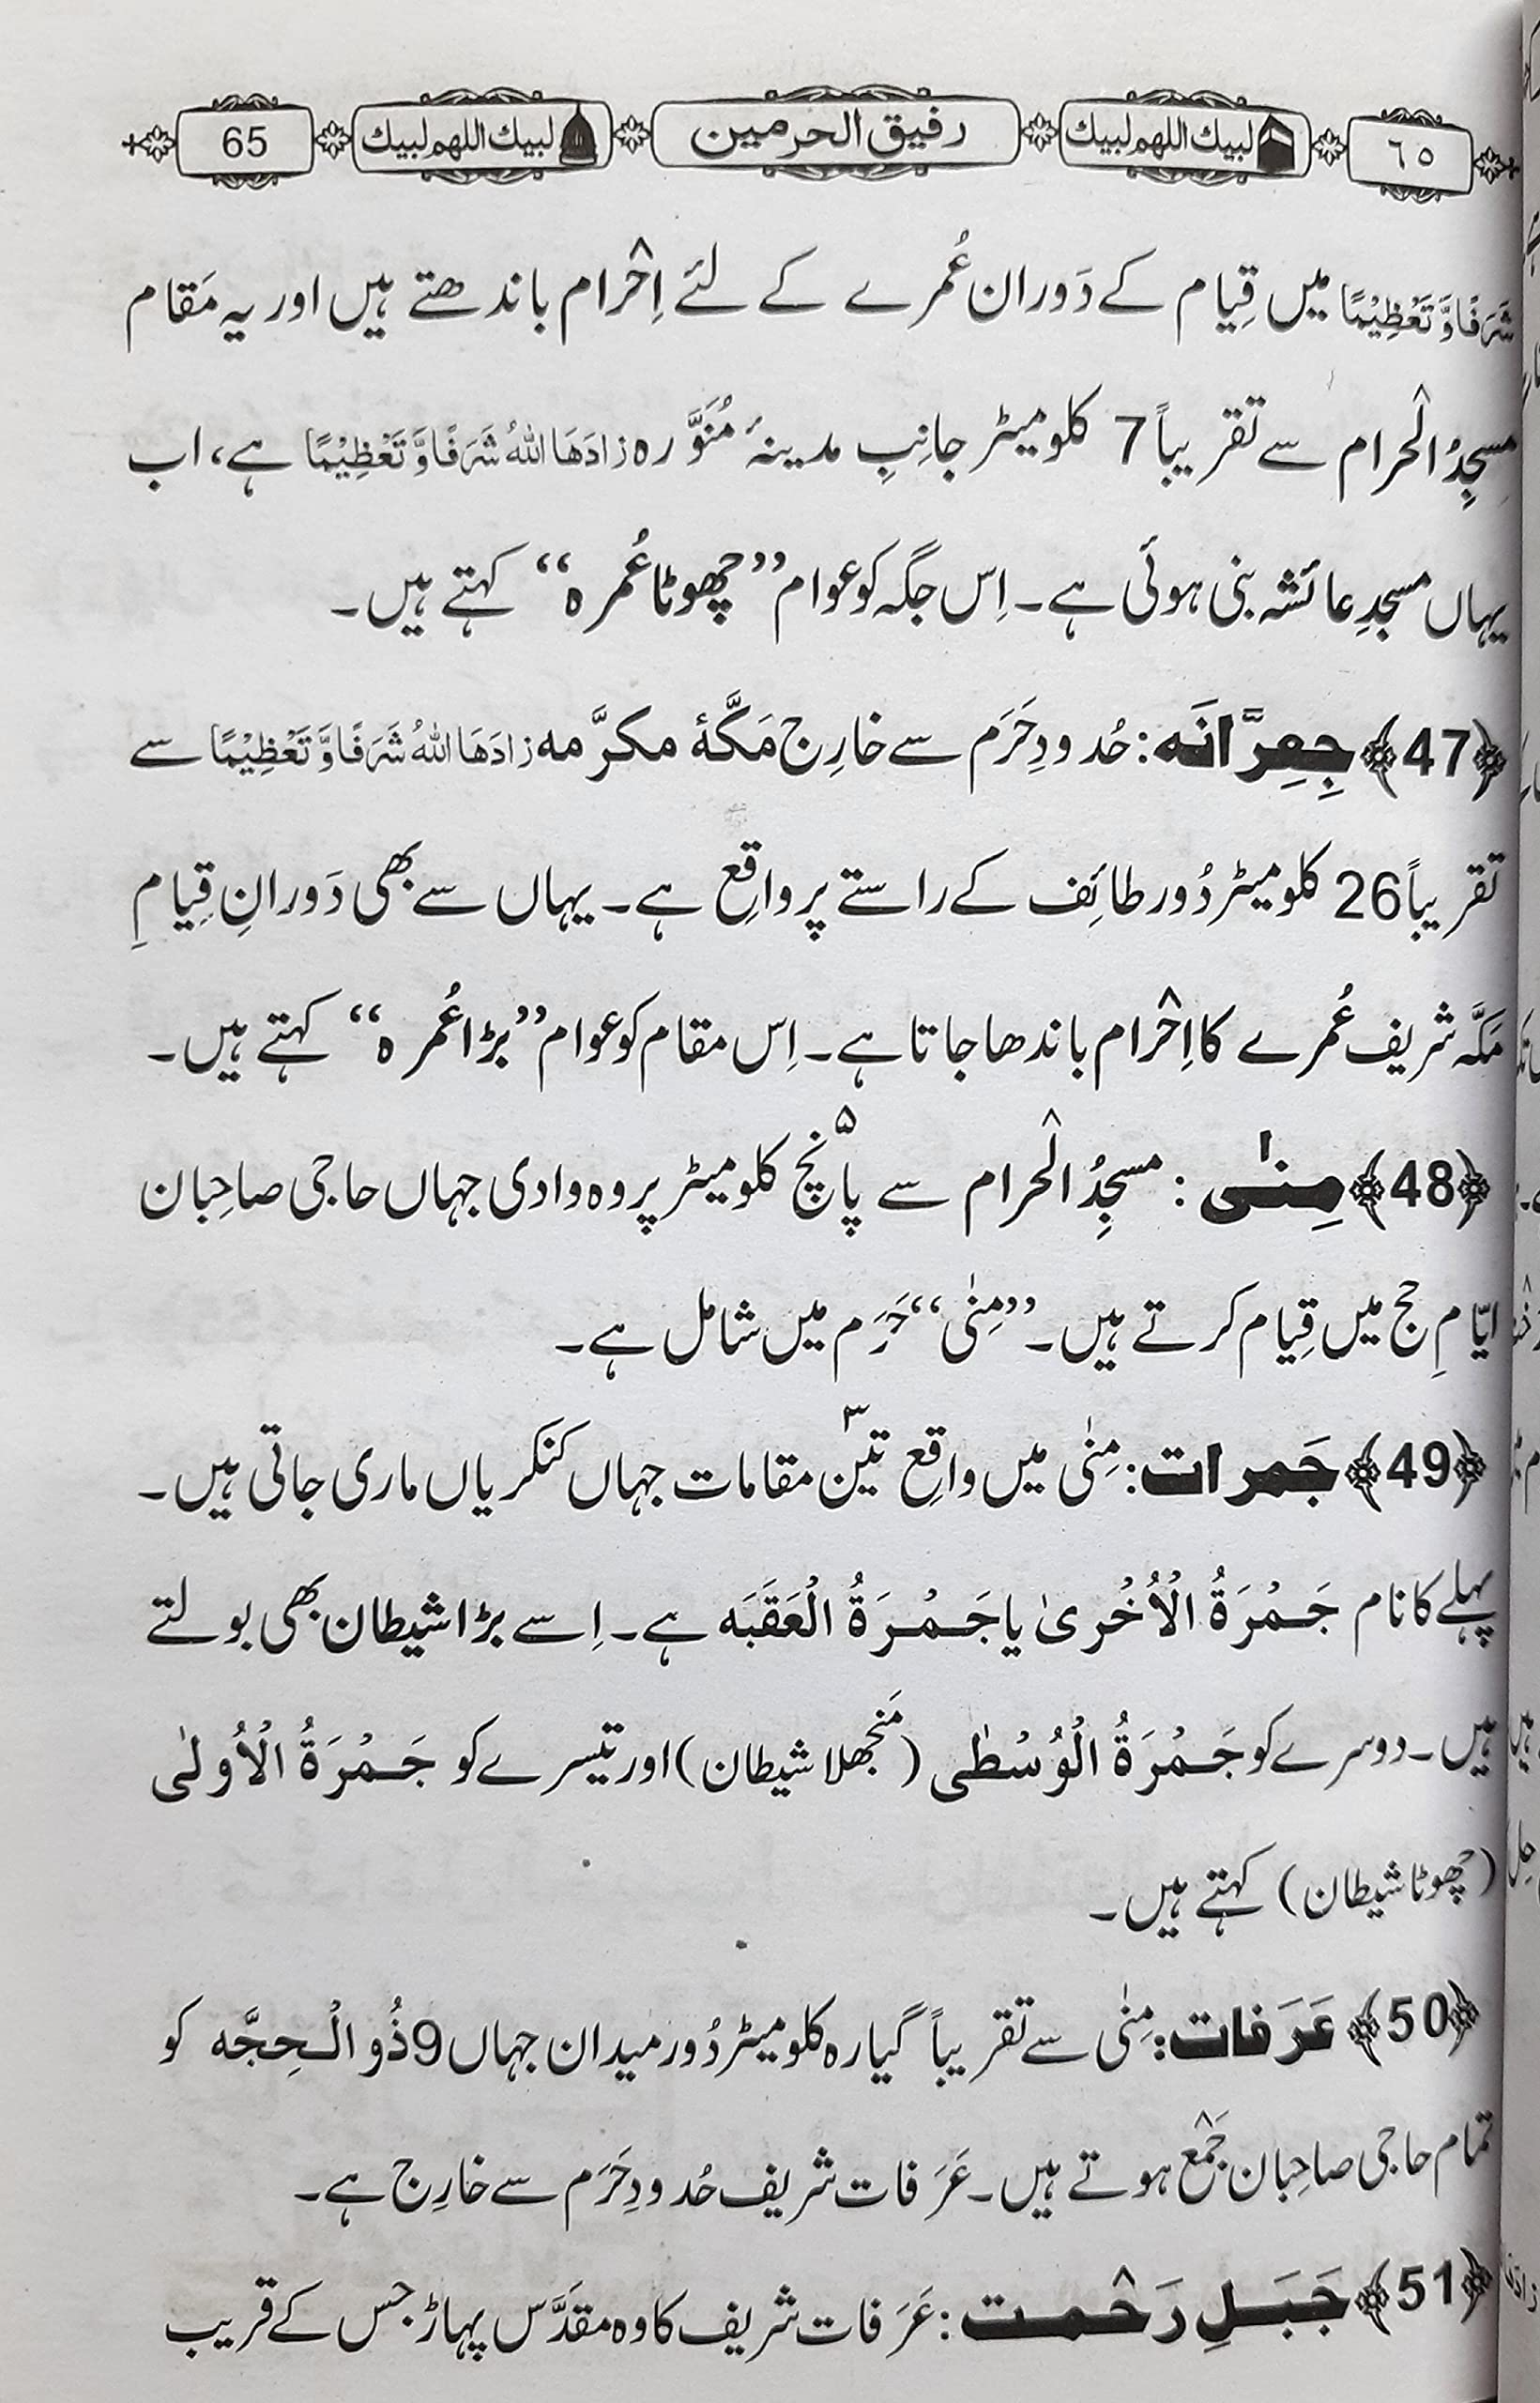 ٦٥ لبيك اللهم لبيك رفيق الحرمين لبيك اللهم لبيك 65
شَرَفًا وَّ تَعْظِيْمًا میں قِیام کے دَوران عُمرے کے لئے اِحْرام باندھتے ہیں اور یہ مَقام
مسجِدُ الْحرام سے تقریباً 7 کلومیٹر جانِبِ مدینۂ مُنَوَّرہ زادَهَا اللهُ شَرَفًا وَّ تَعْظِيْمًا ہے، اب
یہاں مسجدِ عائشہ بنی ہوئی ہے۔ اِس جگہ کو عوام ’’چھوٹا عُمرہ‘‘ کہتے ہیں۔
﴿47﴾ جِعِرَّانَه: حُدودِ حَرَم سے خارِج مَکَّۂ مکرَّمه زادَهَا اللهُ شَرَفًا وَّ تَعْظِيْمًا سے
تقریباً 26 کلومیٹر دُور طائِف کے راستے پر واقِع ہے۔ یہاں سے بھی دَورانِ قِیامِ
مَکَّہ شریف عُمرے کا اِحْرام باندھا جاتا ہے۔ اِس مقام کو عوام ’’بڑا عُمرہ‘‘ کہتے ہیں۔
﴿48﴾ مِنٰی: مسجِدُ الْحرام سے پانْچ ۵ کلومیٹر پر وہ وادی جہاں حاجی صاحِبان
ایّامِ حج میں قِیام کرتے ہیں۔ ’’مِنٰی‘‘ حَرَم میں شامل ہے۔
﴿49﴾ جَمرات: مِنٰی میں واقِع تین ۳ مقامات جہاں کنکریاں ماری جاتی ہیں۔
پہلے کا نام جَمْرَةُ الْاُخْریٰ یا جَمْرَةُ الْعَقَبَه ہے۔ اِسے بڑا شیطان بھی بولتے
ہیں۔ دوسرے کو جَمْرَةُ الْوُسْطٰی (مَنجھلا شیطان) اور تیسرے کو جَمْرَةُ الْاُولٰی
(چھوٹا شیطان) کہتے ہیں۔
﴿50﴾ عَرَفات: مِنٰی سے تقریباً گیارہ کلومیٹر دُور میدان جہاں 9 ذُوالْحِجَّه کو
تمام حاجی صاحِبان جَمْع ہوتے ہیں۔ عَرَفات شریف حُدودِ حَرَم سے خارِج ہے۔
﴿51﴾ جَبَلِ رَحْمت: عَرَفات شریف کا وہ مقدَّس پہاڑ جس کے قریب